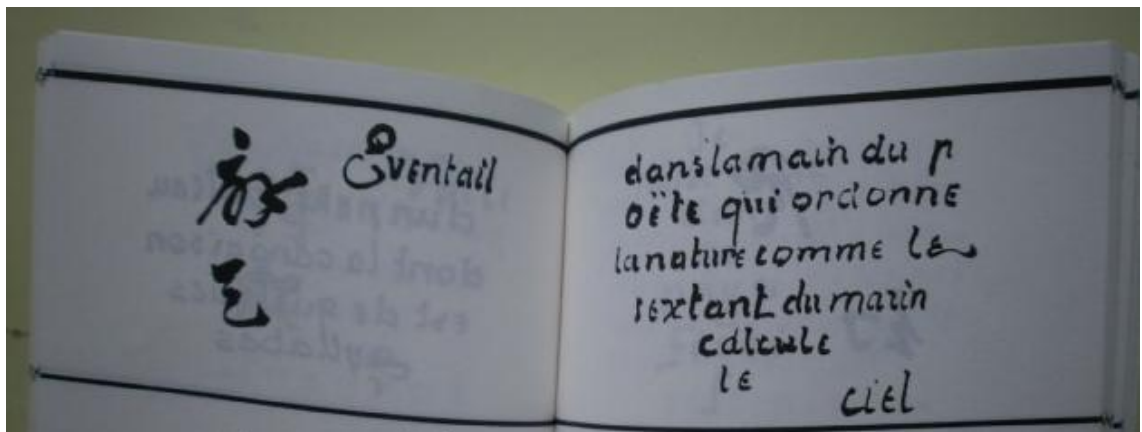 Éventail
dans la main du p
oëte qui ordonne
la nature comme le
sextant du marin
calcule
le
ciel